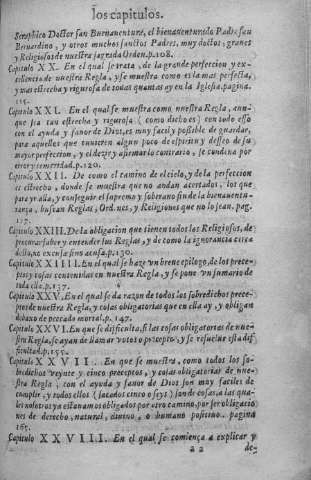 los capitulos.
Seraphico Doctor san Buenauenturæ, el bienauenturado Padre san
Bernardino, y otros muchos sanctos Padres, muy doctos, graues
y Religiosos de nuestra sagrada Orden. p.108.
Capitulo XX. En el qual se trata, de la grande perfeccion y ex-
cellencia de nuestra Regla, y se muestra como es la mas perfecta,
y mas estrecha y rigurosa de todas quantas ay en la Iglesia. pagina.
115.
Capitulo XXI. En el qual se muestra como nuestra Regla, aun-
que sea tan estrecha y rigurosa (como dicho es) con todo esso
con el ayuda y fauor de Dios, es muy facil y possible de guardar,
para aquellos que tuuieren algun poco de espiritu y desseo de su
mayor perfeccion, y el dezir y afirmar lo contrario, se condena por
error y temeridad. p.120.
Capitulo XXII. De como el camino de el cielo, y de la perfeccion
es estrecho, donde se muestra que no andan acertados, los que
para yr alla, y conseguir el supremo y soberano fin de la bienauentu-
rança, buscan Reglas, Ordenes, y Religiones que no lo sean. pag.
127.
Capitulo XXIII. De la obligacion que tienen todos los Religiosos, de
procurar saber y entender sus Reglas, y de como la ignorancia cerca
dello, no excusa sino acusa. p.130.
Capitulo XXIIII. En el qual se haze vn breue epilogo, de los prece-
ptos y cosas contenidas en nuestra Regla, y se pone vn sumario de
toda ella. p.137.
Capitulo XXV. En el qual se da razon de todos los sobredichos prece-
ptos de nuestra Regla, y cosas obligatorias que en ella ay, y obligan
debaxo de peccado mortal. p. 147.
Capitulo XXVI. En que se dificulta, si las cosas obligatorias de nue-
stra Regla, se ayan de llamar votos o preceptos, y se resuelue esta di-
ficultad. p.155.
Capitulo XXVII. En que se muestra, como todos los so-
bredichos veynte y cinco preceptos, y cosas obligatorias de nue-
stra Regla, con el ayuda y fauor de Dios son muy faciles de
cumplir, y todos ellos (sacados cinco o seys) son de cosas, a las qua-
les nosotros ya estauamos obligados por otro camino, por ser obligacio-
nes de derecho, natural, diuino, o humano positiuo. pagina
165.
Capitulo XXVIII. En el qual se comiença a explicar y
a 2 de-